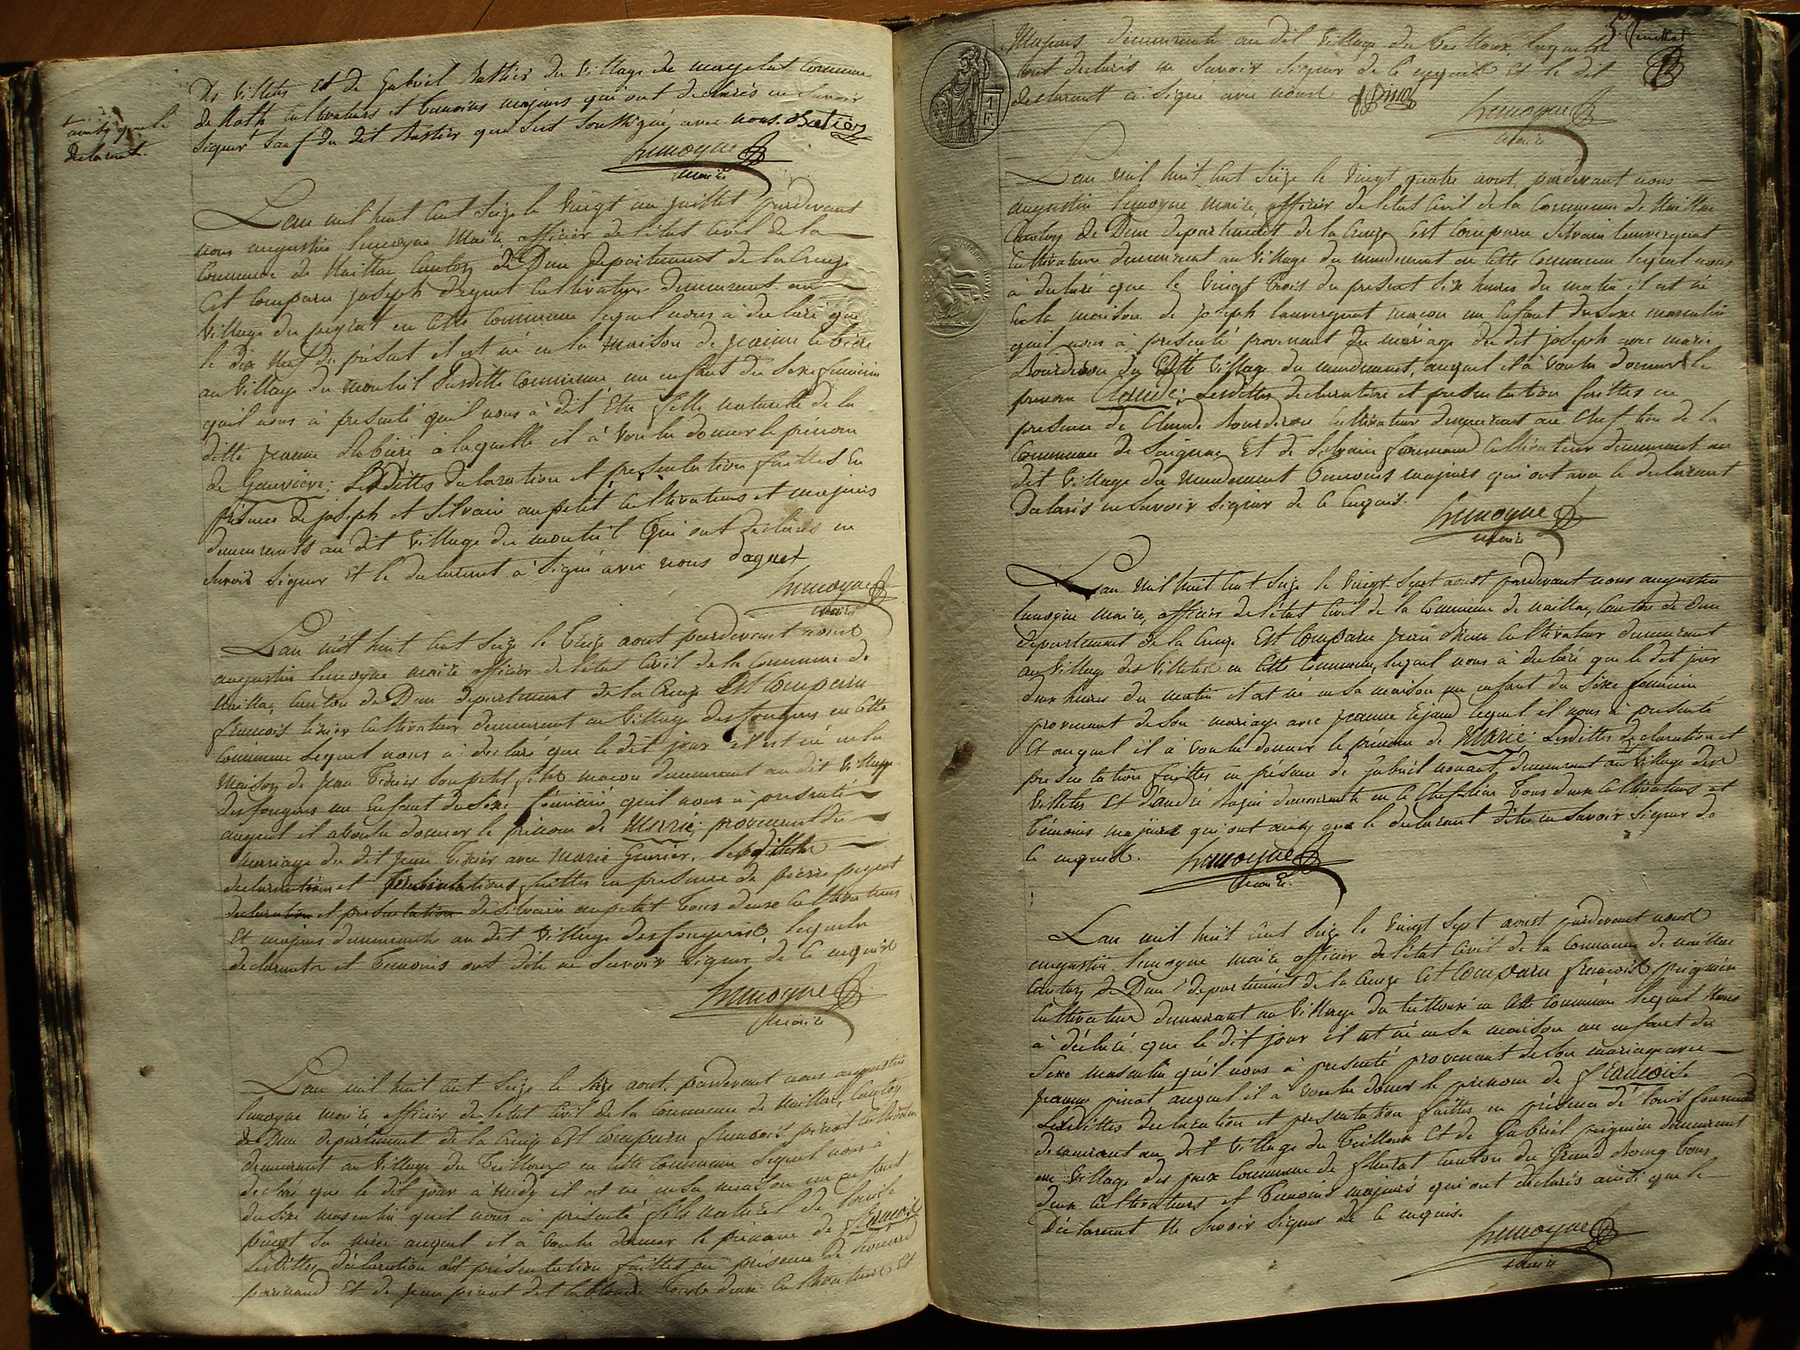 Des Villettes et de Gabriel Rattier du Village de commune
de Noth cultivateurs et temoins majeurs qui ont déclarés ne Savoir
Signer Sauf du dit Rattier qui S'est Soussigné avec nous. Ratier
ainsi que le
declarant.
Lemoyne
Maire
L'an mil huit cent Seize le Vingt un juillet pardevant
nous augustin lemoyne Maire officier de l'état Civil de la
Commune de Naillac Canton de Dun departement de la Creuze
Est Comparu joseph daguet Cultivateur demeurant au
Village du peyrat en Cette Commune lequel nous à declaré que
le dix neuf du présent il est né en la Maison de jeanne
au Village du Monteil Susditte Commune un enfant du Sexe feminin
qu'il nous à presenté qu'il nous à dit Etre fille naturelle de la
ditte jeanne à laquelle il à Voulu donner le prenom
de Genevieve; Lesdittes declaration et presentation faittes En
présence de joseph et Silvain aupetit cultivateurs et majeurs
demeurants au dit Village du monteil Qui ont declarés ne
Savoir Signer Et le declarant à Signé avec nous daguet
Lemoyne
Maire
L'an mil huit cent Seize le aout pardevant nous
augustin lemoyne maire officier de l'état Civil de la Commune de
Naillac Canton de Dun département de la Creuze Est Comparu
francois texier cultivateur demeurant au Village des fougeres en Cette
Commune Lequel nous à declaré que le dit jour il est né en la
Maison de jean Texier Son petit fils macon demeurant au dit Village
des fougeres un Enfant du Sexe féminin qu'il nous à presenté
auquel il a voulu donner le prénom de Marie; provenant du
mariage du dit jean Texier avec Marie Lesdittes
declarations et presentations faittes en presence de pierre peyrot
declaration et presentation de Silvain aupetit Tous deux Cultivateurs
Et majeurs demeurants au dit Village des fougeres, lesquels
declarants et Temoins ont dits ne Savoir Signer de Ce enquis
Lemoyne
Maire
L'an mil huit cent Seize le aout, pardevant nous augustin
lemoyne maire officier de l'état Civil de la Commune de Naillac, Canton
de Dun département de la Creuze Est Comparu francois pinot cultivateur
demeurant au Village du Teilloux en Cette Commune Lequel nous à
declaré que le dit jour à midy il est né en Sa maison un enfant
du Sexe masculin qu'il nous à presenté fils naturel de
pinot Sa auquel il a Voulu donner le prénom de francois
Lesdittes declaration et présentation faittes en présence de
et de jean pinot dit Tous deux Cultivateurs Et
Majeurs demeurants au dit Village du Teilloux, lesquels
ont declarés ne Savoir Signer de Ce enquis Et le dit
declarant a Signé avec nous
Lemoyne
Maire
L'an mil huit Cent Seize le Vingt quatre aout, pardevant nous
augustin lemoyne maire officier de l'état Civil de la Commune de Naillac
Canton de Dun departement de la Creuze Est Comparu Silvain lauvergnat
Cultivateur demeurant au Village du mondement en Cette Commune lequel nous
à declaré que le Vingt Trois du présent Six heures du matin il est né
en la maison de joseph lauvergnat macon un Enfant du Sexe masculin
qu'il nous à presenté provenant du mariage du dit joseph avec marie
Bourderon du dit Village du mondement, auquel il à Voulu donner le
prenom Claude; Lesdittes declaration et présentation faittes en
presence de Claude Bourderon Cultivateur demeurant au Chef lieu de la
Commune de Sagnat Et de Silvain Cultivateur demeurant au
dit Village du Mondement Temoins majeurs qui ont avec le declarant
Declarés ne Savoir Signer de Ce Enquis.
Lemoyne
Maire
L'an mil huit Cent Seize le Vingt Sept aoust pardevant nous augustin
lemoyne maire, officier de l'état Civil de la Commune de naillac, Canton de Dun
département de la Creuze Est Comparu jean Cultivateur demeurant
au Village des Villettes en Cette Commune, lequel nous à declaré que le dit jour
deux heures du matin il est né en Sa maison un enfant du Sexe feminin
provenant de Son mariage avec jeanne lequel il nous à presenté
Et auquel il à Voulu donner le prénom de Marie; Lesdittes declaration et
presentation faittes en présence de gabriel demeurant au Village des
Villettes Et d'andré demeurant en Ce Chef lieu Tous deux Cultivateurs et
Témoins majeurs qui ont ainsy que le declarant dits ne Savoir Signer de
Ce enquis.
Lemoyne
Maire
L'an mil huit Cent Seize le Vingt Sept aoust pardevant nous
augustin lemoyne maire officier de l'état Civil de la Commune de naillac
Canton de Dun departement de la Creuze Est Comparu francois peignin
Cultivateur demeurant au Village du Teilloux en Cette Commune lequel Nous
à déclaré que le dit jour il est né en Sa maison un enfant du
Sexe masculin qu'il nous à presenté provenant de Son mariage avec
jeanne pinot auquel il a Voulu donner le prenom de francois.
Lesdittes declaration et présentation faittes en présence de louis
demeurant au dit Village du Teilloux Et de Gabriel peignin demeurant
au Village des Commune de fleurat Canton du Grand Bourg Tous
deux Cultivateurs et Temoins majeurs qui ont declarés ainsi que le
Déclarant Ne Savoir Signer de Ce enquis.
Lemoyne
Maire